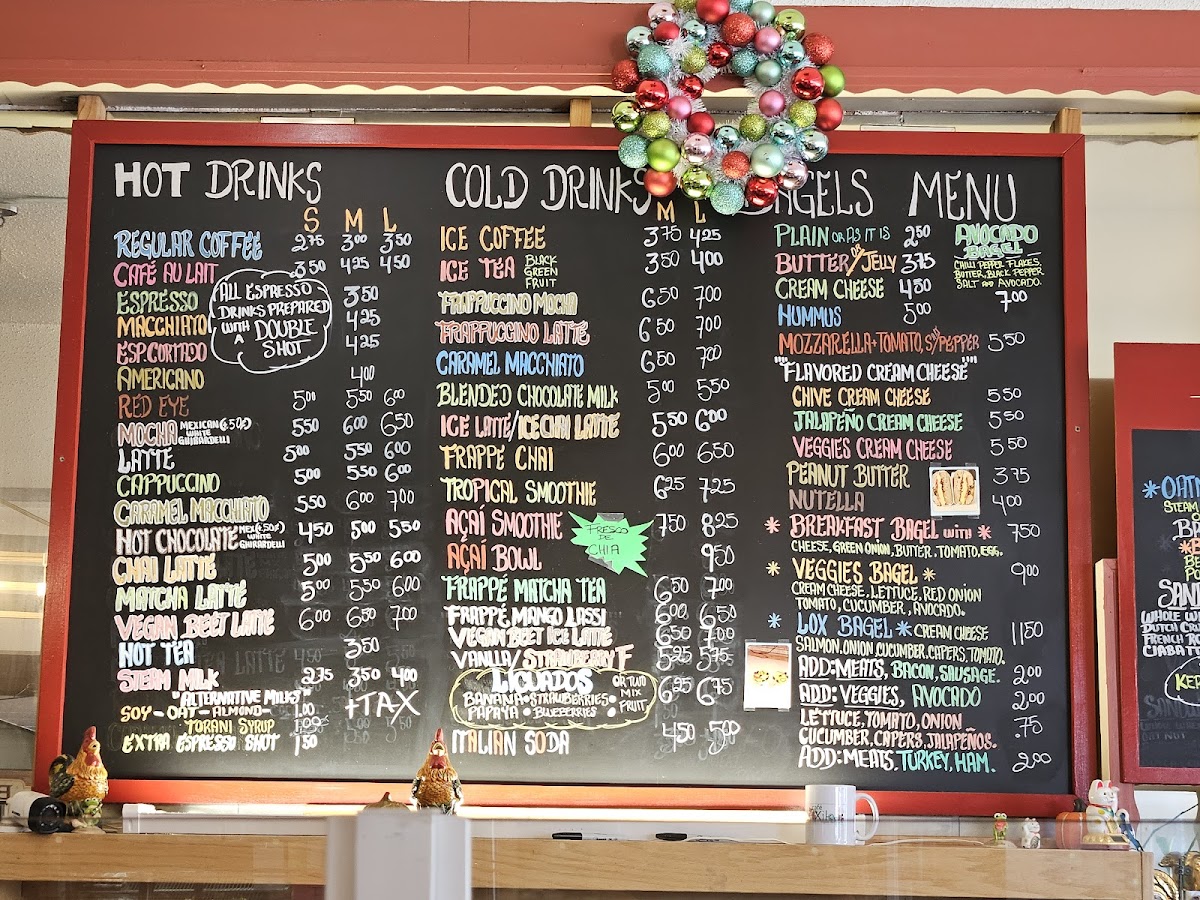 HOT DRINKS
S M L
REGULAR COFFEE 2.75 3.00 3.50
CAFÉ AU LAIT 3.50 4.25 4.50
ESPRESSO 3.50
MACCHIATO 4.25
ESP.CORTADO 4.25
ALL ESPRESSO
DRINKS PREPARED
WITH A DOUBLE
SHOT
AMERICANO 4.00
RED EYE 5.00 5.50 6.00
MOCHA MEXICAN (.50¢) WHITE GHIRARDELLI 5.50 6.00 6.50
LATTE 5.00 5.50 6.00
CAPPUCCINO 5.00 5.50 6.00
CARAMEL MACCHIATO 5.50 6.00 7.00
HOT CHOCOLATE MEX(.50¢) WHITE GHIRARDELLI 4.50 5.00 5.50
CHAI LATTE 5.00 5.50 6.00
MATCHA LATTE 5.00 5.50 6.00
VEGAN BEET LATTE 6.00 6.50 7.00
HOT TEA 3.50
STEAM MILK 2.75 3.50 4.00
"ALTERNATIVE MILKS"
SOY - OAT - ALMOND - 1.00
+TAX
TORANI SYRUP 1.00
EXTRA ESPRESSO SHOT 1.50
COLD DRINKS
M L
ICE COFFEE 3.75 4.25
ICE TEA BLACK GREEN FRUIT 3.50 4.00
FRAPPUCCINO MOCHA 6.50 7.00
FRAPPUCCINO LATTE 6.50 7.00
CARAMEL MACCHIATO 6.50 7.00
BLENDED CHOCOLATE MILK 5.00 5.50
ICE LATTE/ICE CHAI LATTE 5.50 6.00
FRAPPE CHAI 6.00 6.50
TROPICAL SMOOTHIE 6.25 7.25
AÇAÍ SMOOTHIE 7.50 8.25
FRESCO
DE
CHIA
AÇAÍ BOWL 9.50
FRAPPÉ MATCHA TEA 6.50 7.00
FRAPPÉ MANGO LASSI 6.00 6.50
VEGAN BEET ICE LATTE 6.50 7.00
VANILLA/STRAWBERRY F 5.25 5.75
LICUADOS 6.25 6.75
BANANA • STRAWBERRIES •
PAPAYA • BLUEBERRIES •
OR TWO
MIX
FRUIT
ITALIAN SODA 4.50 5.00
BAGELS MENU
PLAIN OR AS IT IS 2.50
BUTTER OR JELLY 3.75
CREAM CHEESE 4.50
HUMMUS 5.00
AVOCADO
BAGEL
CHILLI PEPPER FLAKES,
BUTTER, BLACK PEPPER
SALT AND AVOCADO.
7.00
MOZZARELLA+TOMATO, S+PEPPER 5.50
""FLAVORED CREAM CHEESE""
CHIVE CREAM CHEESE 5.50
JALAPEÑO CREAM CHEESE 5.50
VEGGIES CREAM CHEESE 5.50
PEANUT BUTTER 3.75
NUTELLA 4.00
* BREAKFAST BAGEL WITH * 7.50
CHEESE, GREEN ONION, BUTTER. TOMATO, EGG.
* VEGGIES BAGEL * 9.00
CREAM CHEESE, LETTUCE, RED ONION
TOMATO, CUCUMBER, AVOCADO.
* LOX BAGEL * CREAM CHEESE 11.50
SALMON.ONION.CUCUMBER.CAPERS,TOMATO.
ADD:MEATS, BACON, SAUSAGE. 2.00
ADD: VEGGIES, AVOCADO 2.00
LETTUCE, TOMATO, ONION .75
CUCUMBER, CAPERS, JALAPEÑOS.
ADD: MEATS. TURKEY, HAM. 2.00